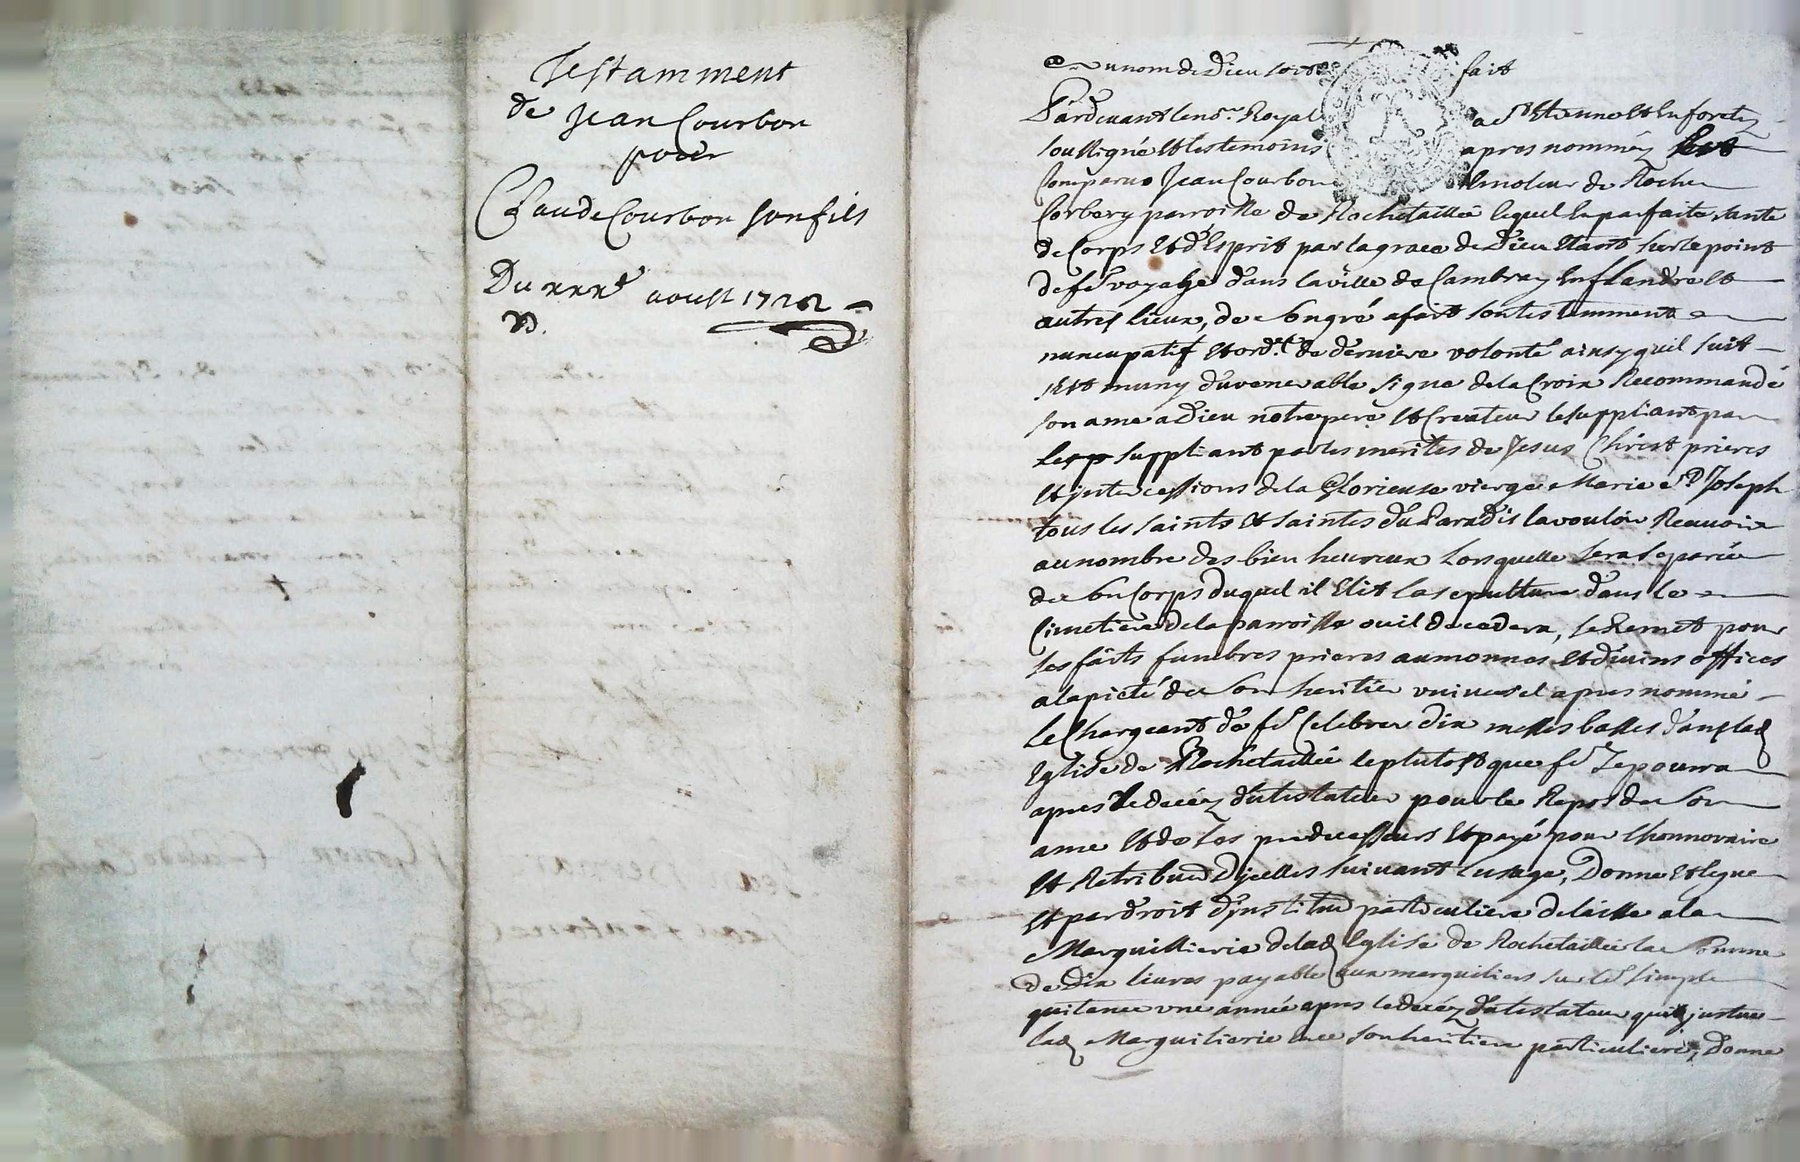 Testamment
de Jean Courbon
pour
Claude Courbon son fils
Du xxxe aoust 1728
Au nom de Dieu soit fait
Pardevant le nre. Royal a St Etienne Et En foretz
soussigné Et les temoins apres nomméz Est
Comparu Jean Courbon Emoleur de Roche
Corbery parroisse de Rochetaillée lequel En parfaite sante
de Corps Et d'Esprit par la grace de Dieu Etant sur le point
de fe voyage dans la ville de Cambray En flandre Et
autres lieux, de son gré a fait son testamment
nuncupatif Et ordt. de derniere volonté ainsy quil suit
sEst muny du venerable signe de la Croix Recommandé
son ame a Dieu notre pere Et Createur le suppliant par
suppliant par les merites de Jesus Christ prieres
Et jntercessions de la Glorieuse vierge Marie St Joseph
tous les saints Et saintes du Paradis la vouloir Recevoir
au nombre des bien heureux Lorsquelle sera separée
de son Corps duquel il Elit la sepulture dans le
Cimetiere de la parroisse ou il decedera, se Remet pour
ses faits funebres prieres aumonnes Et divins offices
a la pieté de son heritier vniversel apres nommé
Le Chargeant de fe Celebrer dix messes basses dans lad
Eglise de Rochetaillée le plutost que fe se pourra
apres le decéz du testateur pour le Repos de son
ame Et de ses predecesseurs Et payé pour lhonnoraire
Et Retribuon Djcelles suivant lusage, Donne Et legue
Et par droit d'jnstituon particuliere delaisse a la
Marguillierie de lad Eglise de Rochetaillée la somme
de dix livres payable aux marguiliers sur le simple
quitance vne année apres le decéz du testateur qui jnstitue
lad Marguilierie son heritiere particuliere, Donne